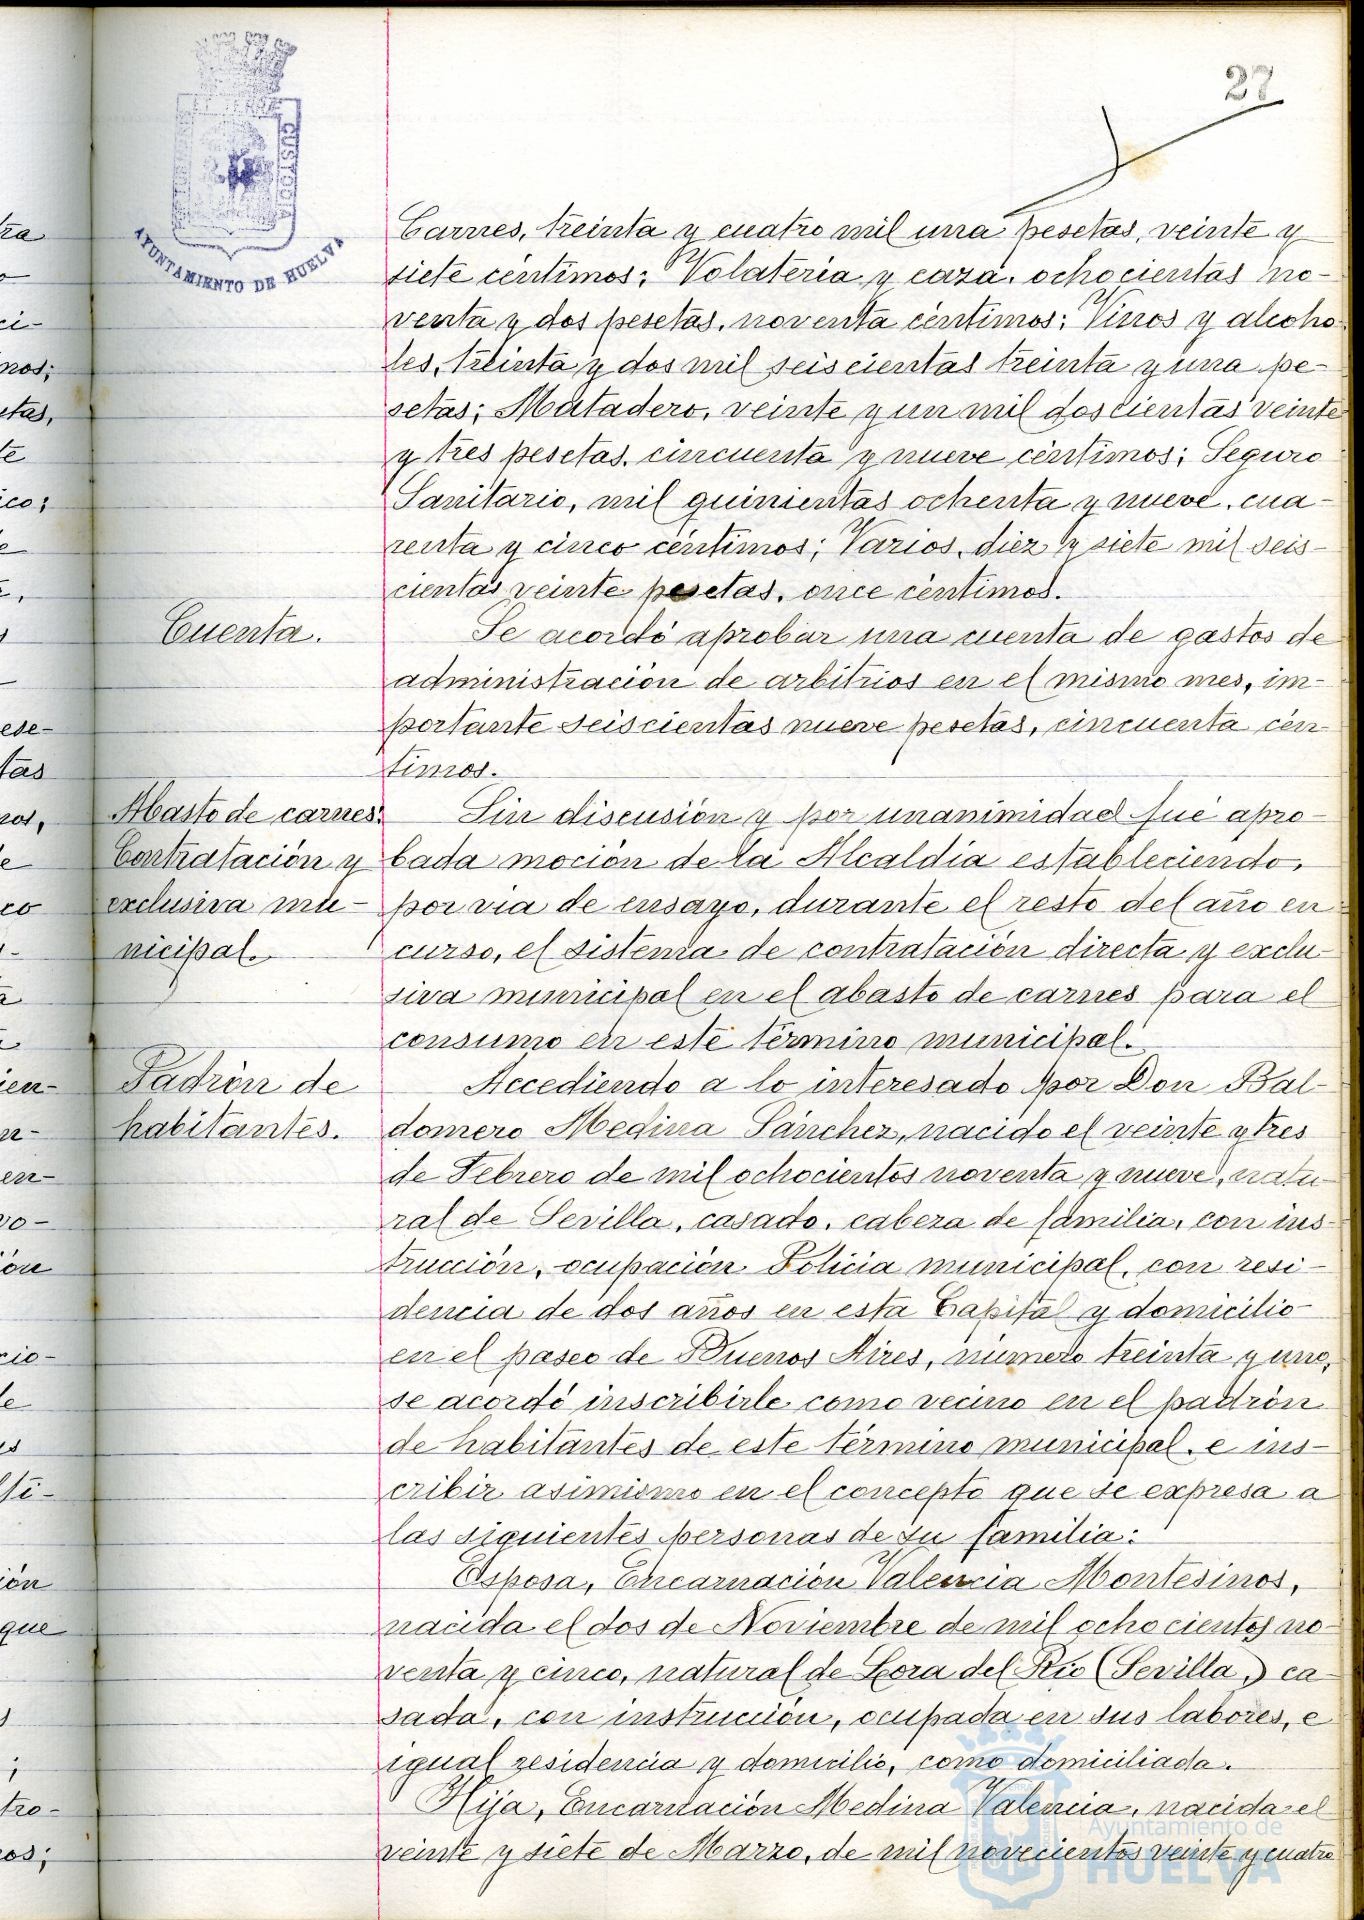 27
ET TERRÆ
CUSTODIA
AYUNTAMIENTO DE HUELVA
Carnes, treinta y cuatro mil una pesetas, veinte y
siete céntimos; Volatería y caza, ochocientas no-
venta y dos pesetas, noventa céntimos; Vinos y alcoho-
les, treinta y dos mil seiscientas treinta y una pe-
setas; Matadero, veinte y un mil doscientas veinte
y tres pesetas, cincuenta y nueve céntimos; Seguro
Sanitario, mil quinientas ochenta y nueve, cua-
renta y cinco céntimos; Varios, diez y siete mil seis-
cientas veinte pesetas, once céntimos.
Cuenta.
Se acordó aprobar una cuenta de gastos de
administración de arbitrios en el mismo mes, im-
portante seiscientas nueve pesetas, cincuenta cén-
timos.
Abasto de carnes:
Contratación y
exclusiva mu-
nicipal.
Sin discusión y por unanimidad fué apro-
bada moción de la Alcaldía estableciendo,
por vía de ensayo, durante el resto del año en
curso, el sistema de contratación directa y exclu-
siva municipal en el abasto de carnes para el
consumo en este término municipal.
Padrón de
habitantes.
Accediendo a lo interesado por Don Bal-
domero Medina Sánchez, nacido el veinte y tres
de Febrero de mil ochocientos noventa y nueve, natu-
ral de Sevilla, casado, cabeza de familia, con ins-
trucción, ocupación Policía municipal, con resi-
dencia de dos años en esta Capital y domicilio
en el paseo de Buenos Aires, número treinta y uno,
se acordó inscribirle como vecino en el padrón
de habitantes de este término municipal, e ins-
cribir asimismo en el concepto que se expresa a
las siguientes personas de su familia:
Esposa, Encarnación Valencia Montesinos,
nacida el dos de Noviembre de mil ochocientos no-
venta y cinco, natural de Lora del Río (Sevilla,) ca-
sada, con instrucción, ocupada en sus labores, e
igual residencia y domicilio, como domiciliada.
Hija, Encarnación Medina Valencia, nacida el
veinte y siete de Marzo, de mil novecientos veinte y cuatro
Ayuntamiento de
HUELVA